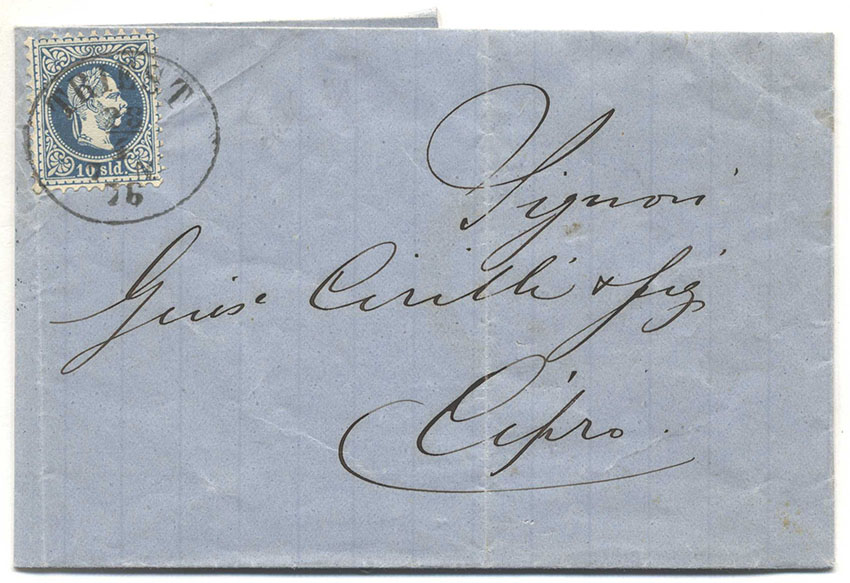 TRIEST
28
76
10 sld.
Signori
Gius.e Cirilli & fig
Cipro.